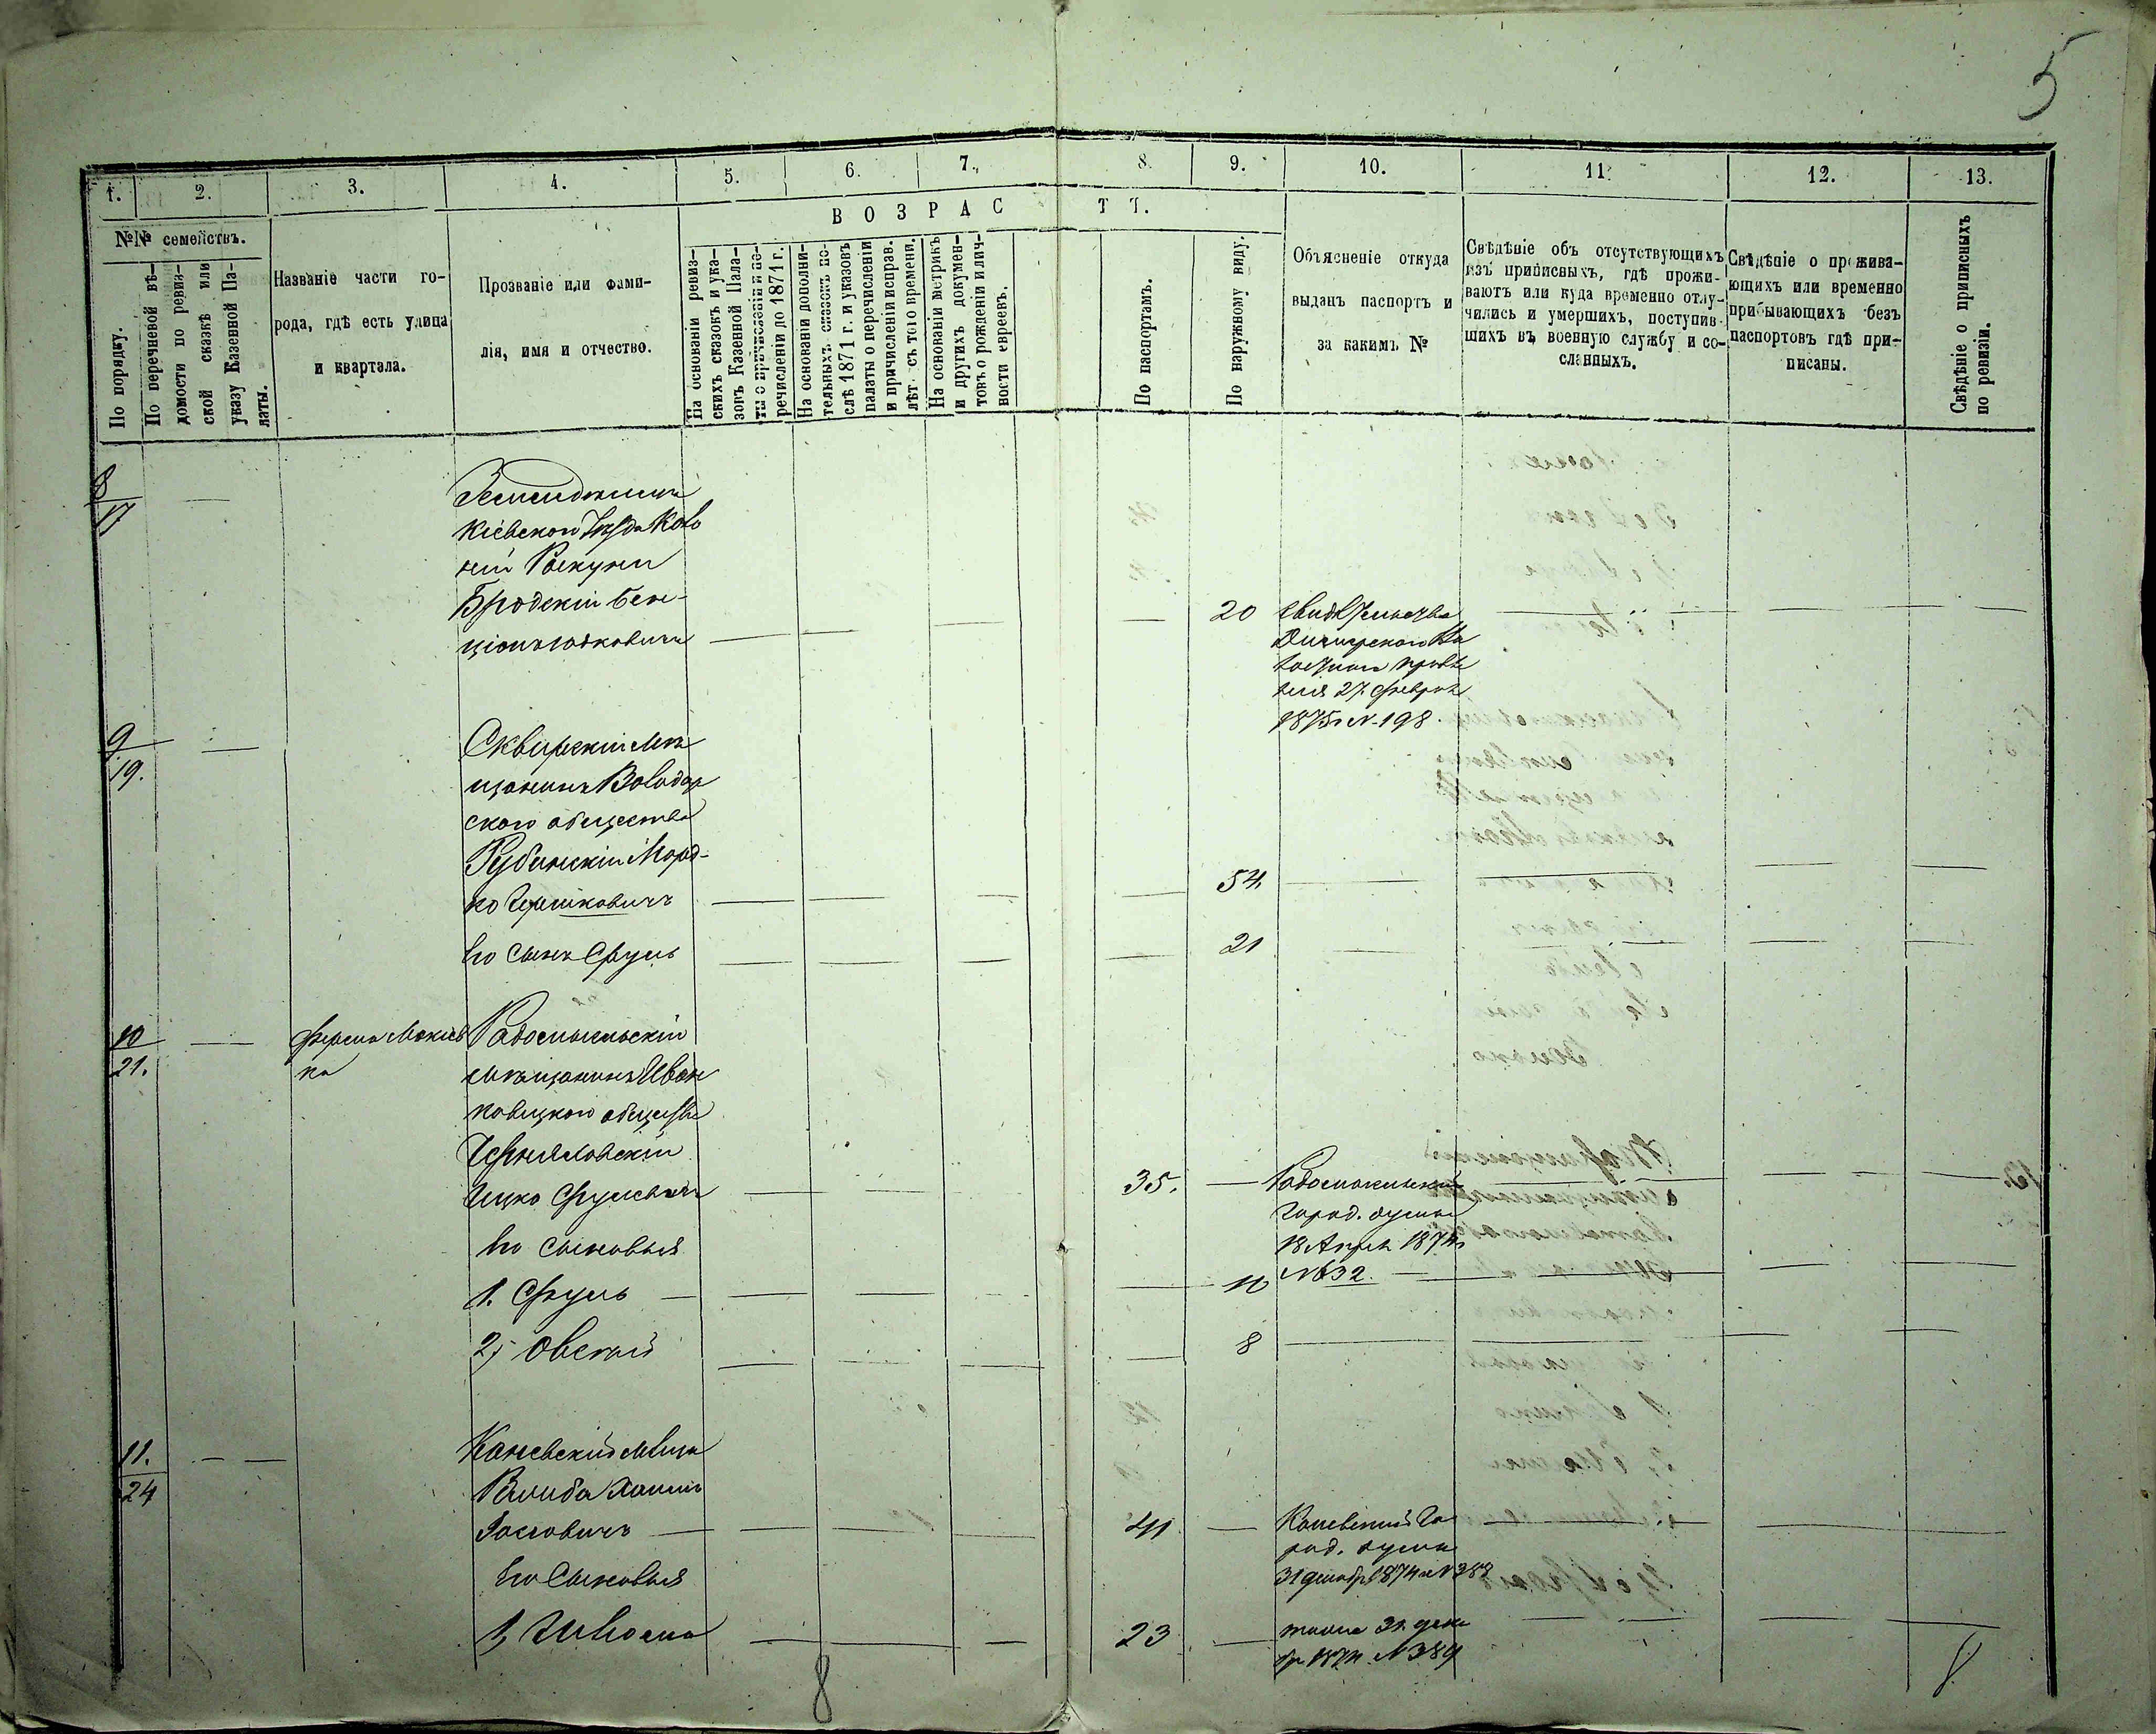 5
1. 2. 3. 4. 5. 6. 7. 8. 9. 10. 11. 12. 13.
№№ семействъ.
По порядку.
По перечневой вѣ-
домости по ревиз-
ской сказкѣ или
указу Казенной Па-
латы.
Названіе части го-
рода, гдѣ есть улица
и квартала.
Прозваніе или фами-
лія, имя и отчество.
ВОЗРАСТЪ.
На основаніи ревиз-
скихъ сказокъ и ука-
зовъ Казенной Пала-
ты о причисленіи и пе-
речисленіи до 1871 г.
На основаніи дополни-
тельныхъ сказокъ по-
слѣ 1871 г. и указовъ
палаты о перечисленіи
и причисленіи исправ.
лѣт. съ того времени.
На основаніи метрикъ
и другихъ докумен-
товъ о рожденіи и лич-
ности евреевъ.
По паспортамъ.
По наружному виду.
Объясненіе откуда
выданъ паспортъ и
за какимъ №
Свѣдѣніе объ отсутствующихъ
изъ приписныхъ, гдѣ прожи-
ваютъ или куда временно отлу-
чились и умершихъ, поступив-
шихъ въ военную службу и со-
сланныхъ.
Свѣдѣніе о прожива-
ющихъ или временно
прибывающихъ безъ
паспортовъ гдѣ при-
писаны.
Свѣдѣніе о приписныхъ
по ревизіи.
8
17
Кіевскаго Уѣзда Коло
ніи
Бродскій Бен-
ціонъ
20
Свидѣтельство
27 Февраля
1875 г № 198.
9
19.
Сквирскій Мѣ
щанинъ Володар
скаго общества
Рубинскій Морд-
ко Гершковичъ
54
Его сынъ Сруль
21
10
21.
Ферма
Радомысльскій
мѣщанинъ Иван
ковицкого общества
Черняховскій
Ицко Срулевичъ
35.
Радомысльской
Город. думой
18 Апрѣл 1874
№ 632.
Его сыновья
1. Сруль
10
2, Овсей
8
11.
24
Каневскій Мѣщан
Хаимъ
Іосіовичъ
41
Каневской Го
род. думы
31 декабр 1874 г №
Его Сыновья
1,
23
31 дека
бр 1874 № 389
8
8